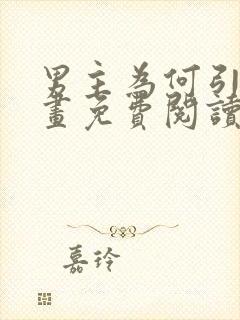 男主為何引
畫免費閱讀
嘉玲